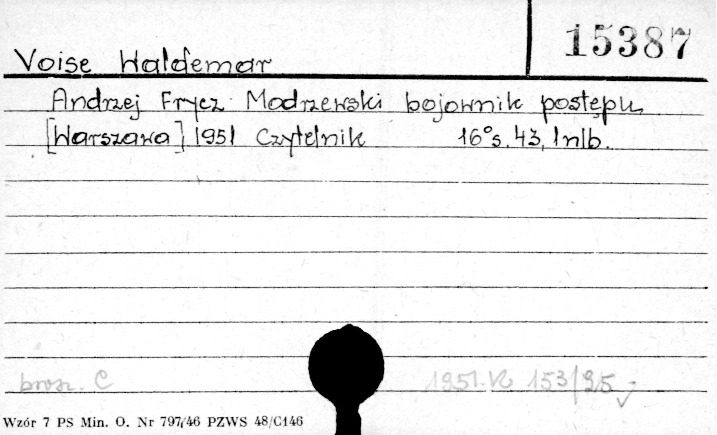 15387
Voise Waldemar
Andrzej Frycz Modrzewski bojownik postępu
[Warszawa] 1951 Czytelnik 16° s. 43, 1 nlb.
brosz. C 1951. K 153/95
Wzór 7 PS Min. O. Nr 797/46 PZWS 48/C146